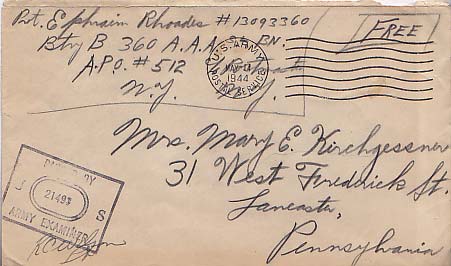 Pvt. Ephraim Rhoades # 13093360
Btry B 360 A.A.A. BN.
A.P.O. # 512
N.Y.
FREE
U.S. ARMY
1944
POSTAL SERVICE
Mrs. Mary E. Kirchgessner
31 West Frederick St.
Lancaster,
Pennsylvania
PASSED BY
U S
21493
ARMY EXAMINER